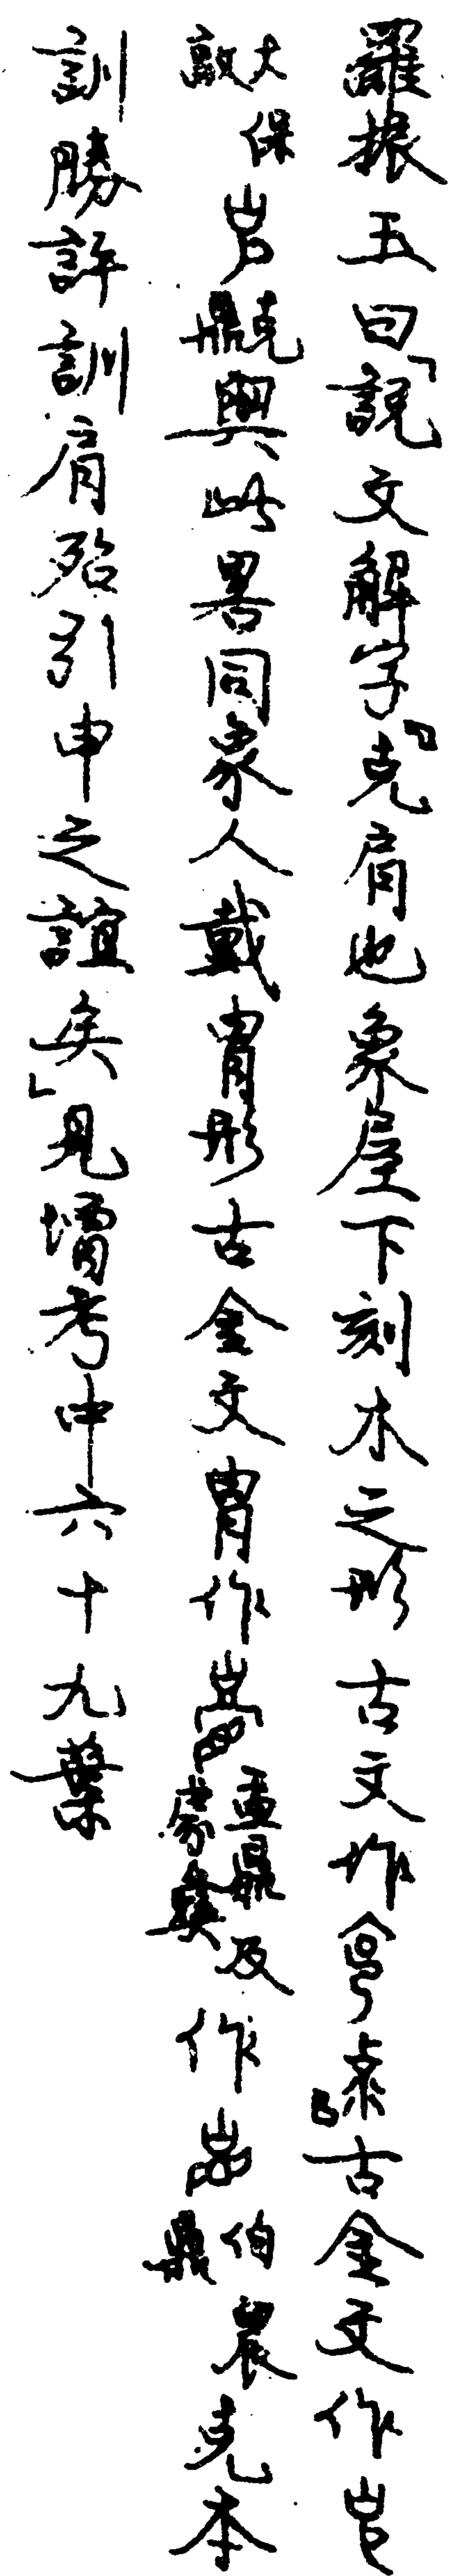 羅振玉曰「說文解字『克肩也象屋下刻木之形古文作𠅏𣩈』古金文作
大保𣪘克鼎與此畧同象人戴胄形古金文胄作盂鼎及彔𢑴作伯晨鼎克本
訓勝許訓肩殆引申之誼矣」見增考中六十九葉